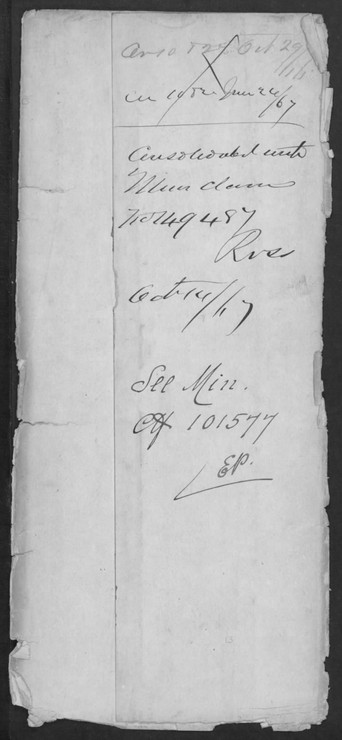 Oct 29
Jan 24/67
Consolidated with
Minr claim
No 149487
Ross
Oct 14/67
See Min.
Ctf 101577
EP.